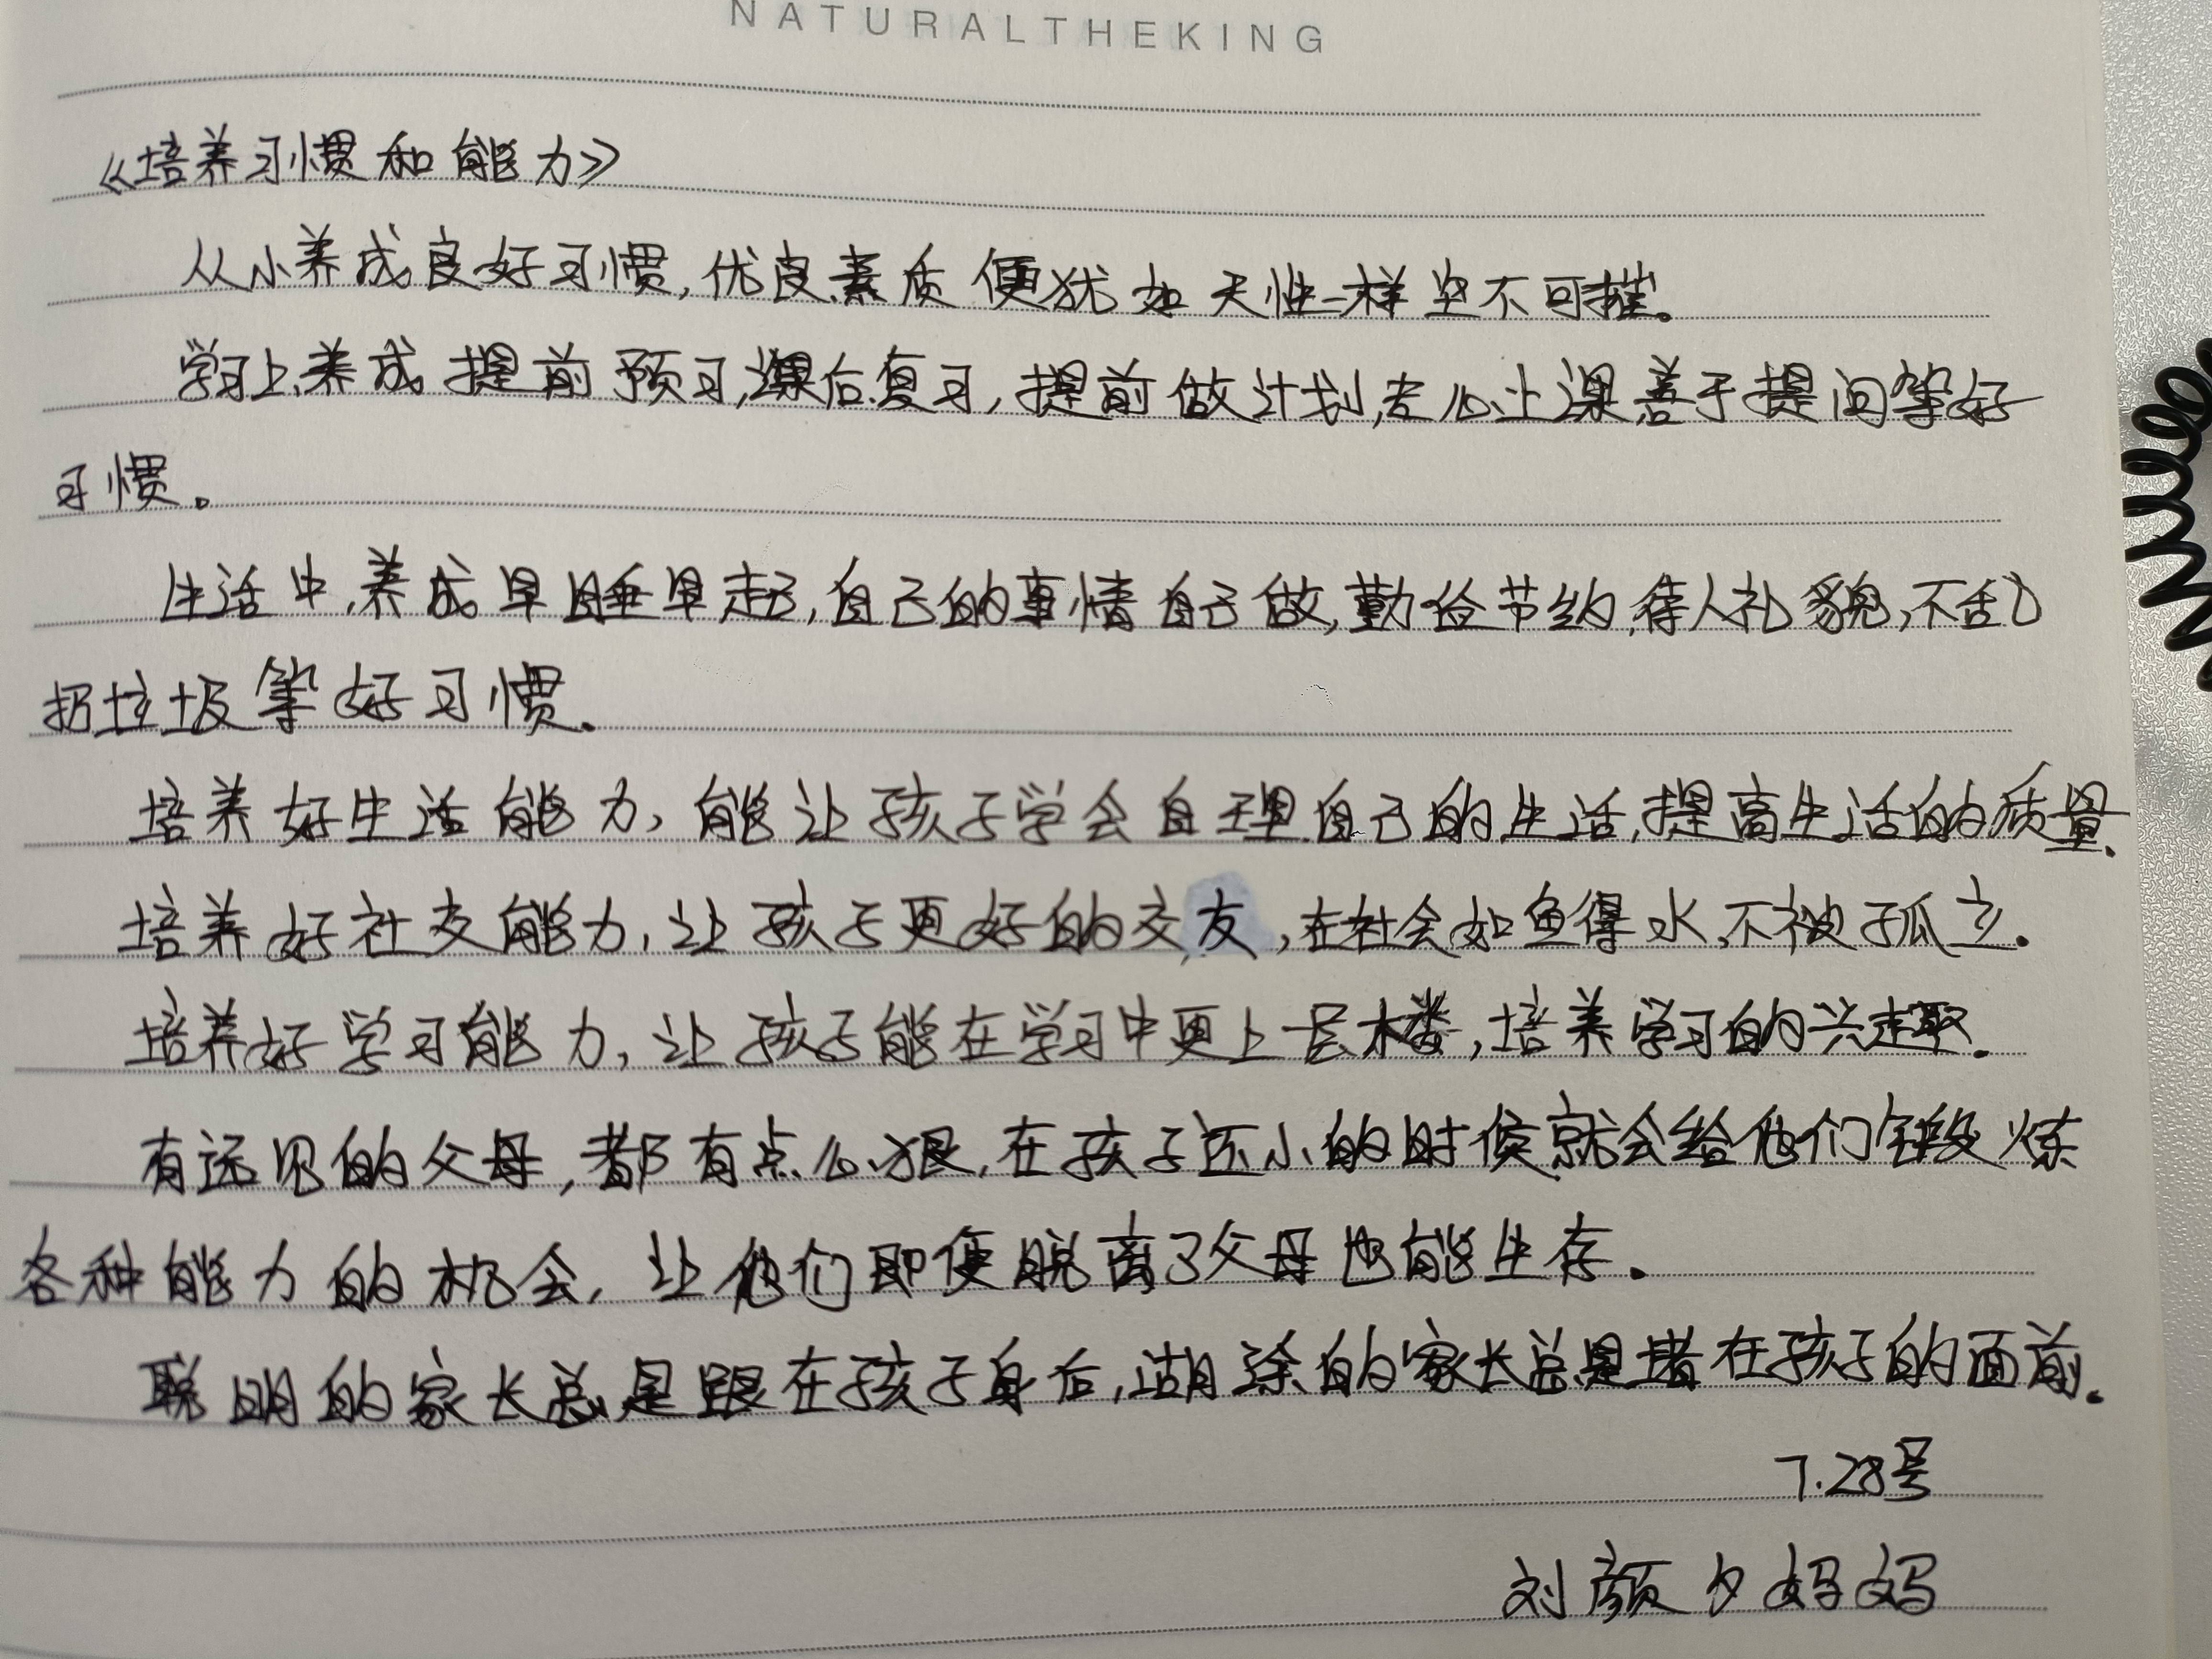 NATURALTHEKING
《培养习惯和能力》
从小养成良好习惯,优良素质便犹如天性一样坚不可摧。
学习上,养成提前预习,课后复习,提前做计划,专心上课,善于提问等好
习惯。
生活中,养成早睡早起,自己的事情自己做,勤俭节约,待人礼貌,不乱
扔垃圾等好习惯.
培养好生活能力,能让孩子学会自理自己的生活,提高生活的质量.
培养好社交能力,让孩子更好的交友,在社会如鱼得水,不被孤立.
培养好学习能力,让孩子能在学习中更上一层楼,培养学习的兴趣.
有远见的父母,都有点心狠,在孩子还小的时候就会给他们锻炼
各种能力的机会,让他们即便脱离了父母也能生存.
聪明的家长总是跟在孩子身后,糊涂的家长总是堵在孩子的面前.
7.28号
刘颜夕妈妈